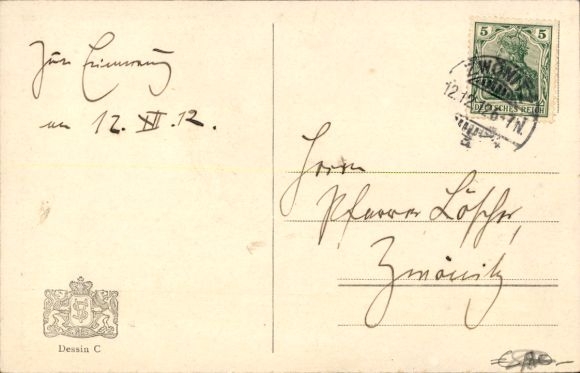 Zur Erinnerung
an 12. XII. 12.
5 5
DEUTSCHES REICH
12.12.
8-7N.
Herrn
Pfarrer Löscher,
Zwönitz
Dessin C